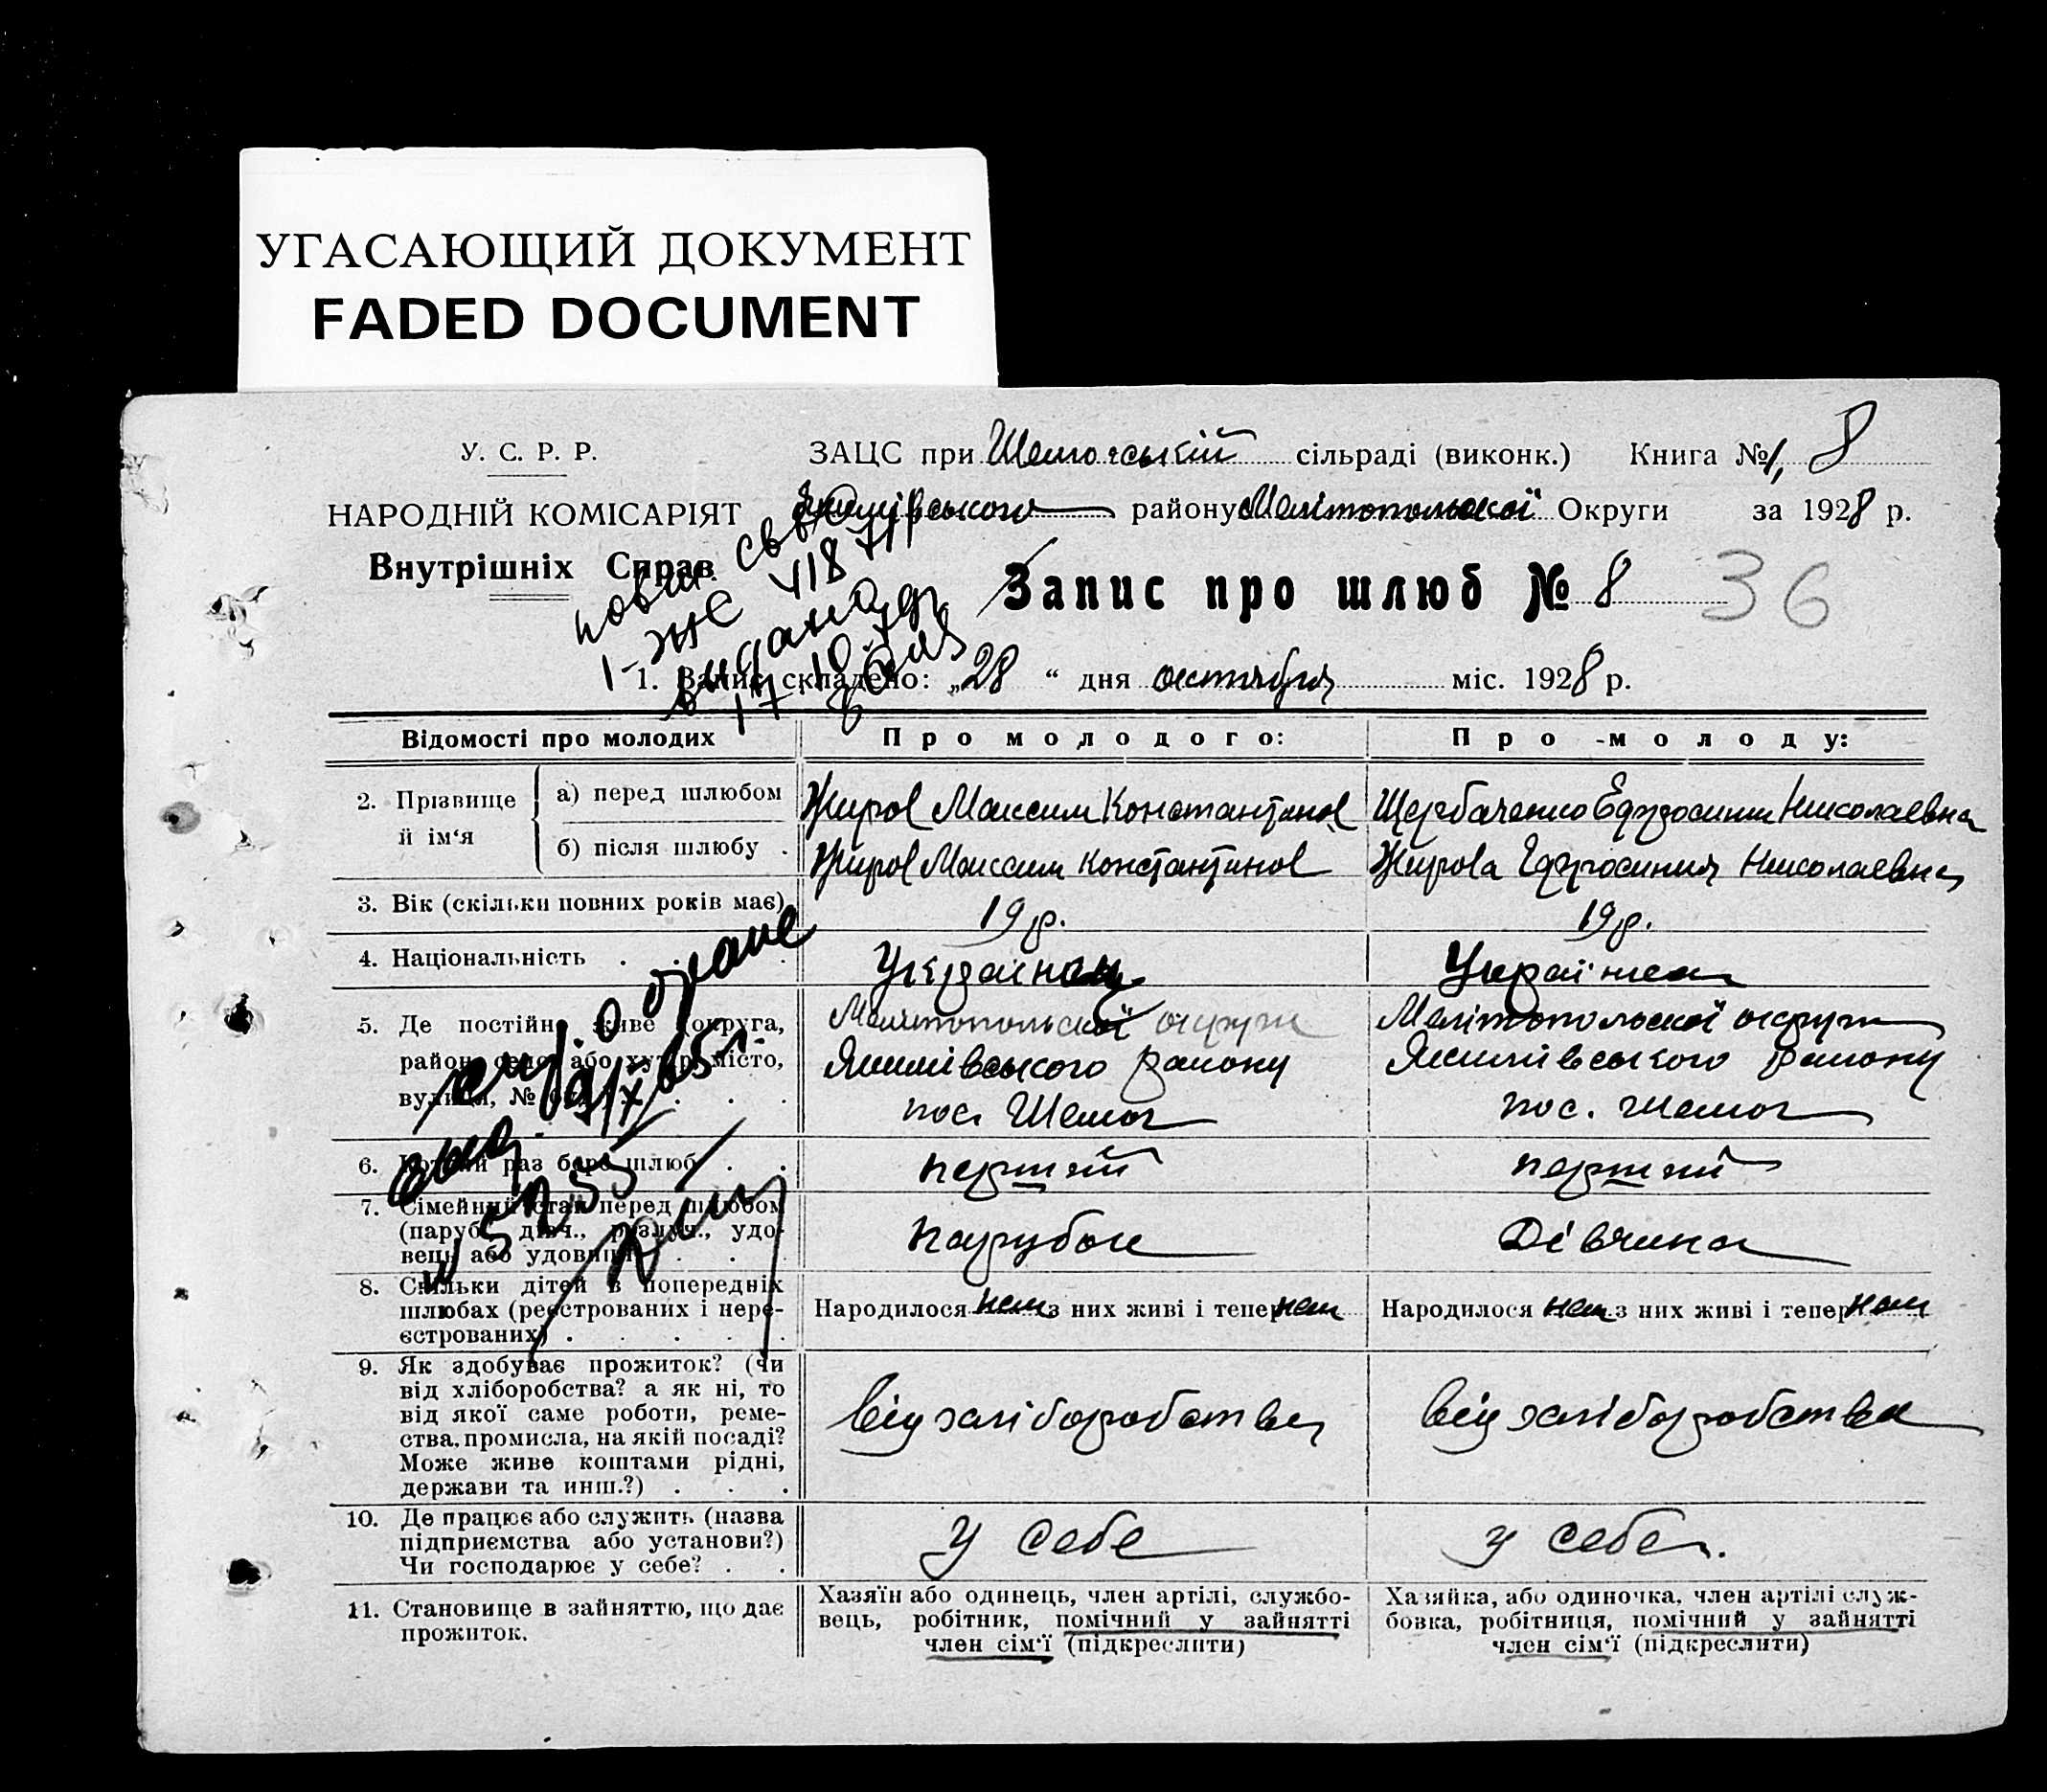 УГАСАЮЩИЙ ДОКУМЕНТ
FADED DOCUMENT
У. С. Р. Р.
ЗАЦС при сільраді (виконк.) Книга № 1, 8
НАРОДНІЙ КОМІСАРІЯТ
району Мелітопольскої Округи за 1928 р.
Внутрішніх Справ
Запис про шлюб № 8 36
1. Запис складено: „28“ дня октября міс. 1928 р.
Відомості про молодих Про молодого: Про молоду:
2. Прізвище й ім‘я
а) перед шлюбом Жиров Максим Константинов Щербаченко Ефросиния Николаевна
б) після шлюбу . Жиров Максим Константинов Жирова Ефросиния Николаевна
3. Вік (скільки повних років має) 19 р. 19 р.
4. Національність . . Українец Українка
5. Де постійно живе (округа, район, село або хутір, місто, вулиця, №
Мелітопольскої округи Мелітопольскої округи
Якимівського району Якимівського району
пос. Шемог пос. Шемог
6. Котрий раз бере шлюб . . перший перший
7. Сімейний стан перед шлюбом (паруб., дівч., розлуч., удовець або удовиця) Парубок Дівчина
8. Скільки дітей в попередніх шлюбах (реєстрованих і нереєстрованих) .
Народилося нет з них живі і тепер нет Народилося нет з них живі і тепер нет
9. Як здобуває прожиток? (чи від хліборобства? а як ні, то від якої саме роботи, ремества, промисла, на якій посаді? Може живе коштами рідні, держави та инш.?) . . .
від хліборобства від хліборобства
10. Де працює або служить (назва підприємства або установи?) Чи господарює у себе? . .
у себе у себе.
11. Становище в зайняттю, що дає прожиток.
Хазяїн або одинець, член артілі, службовець, робітник, помічний у зайнятті член сім‘ї (підкреслити)
Хазяйка, або одиночка, член артілі службовка, робітниця, помічний у зайнятті член сім‘ї (підкреслити)